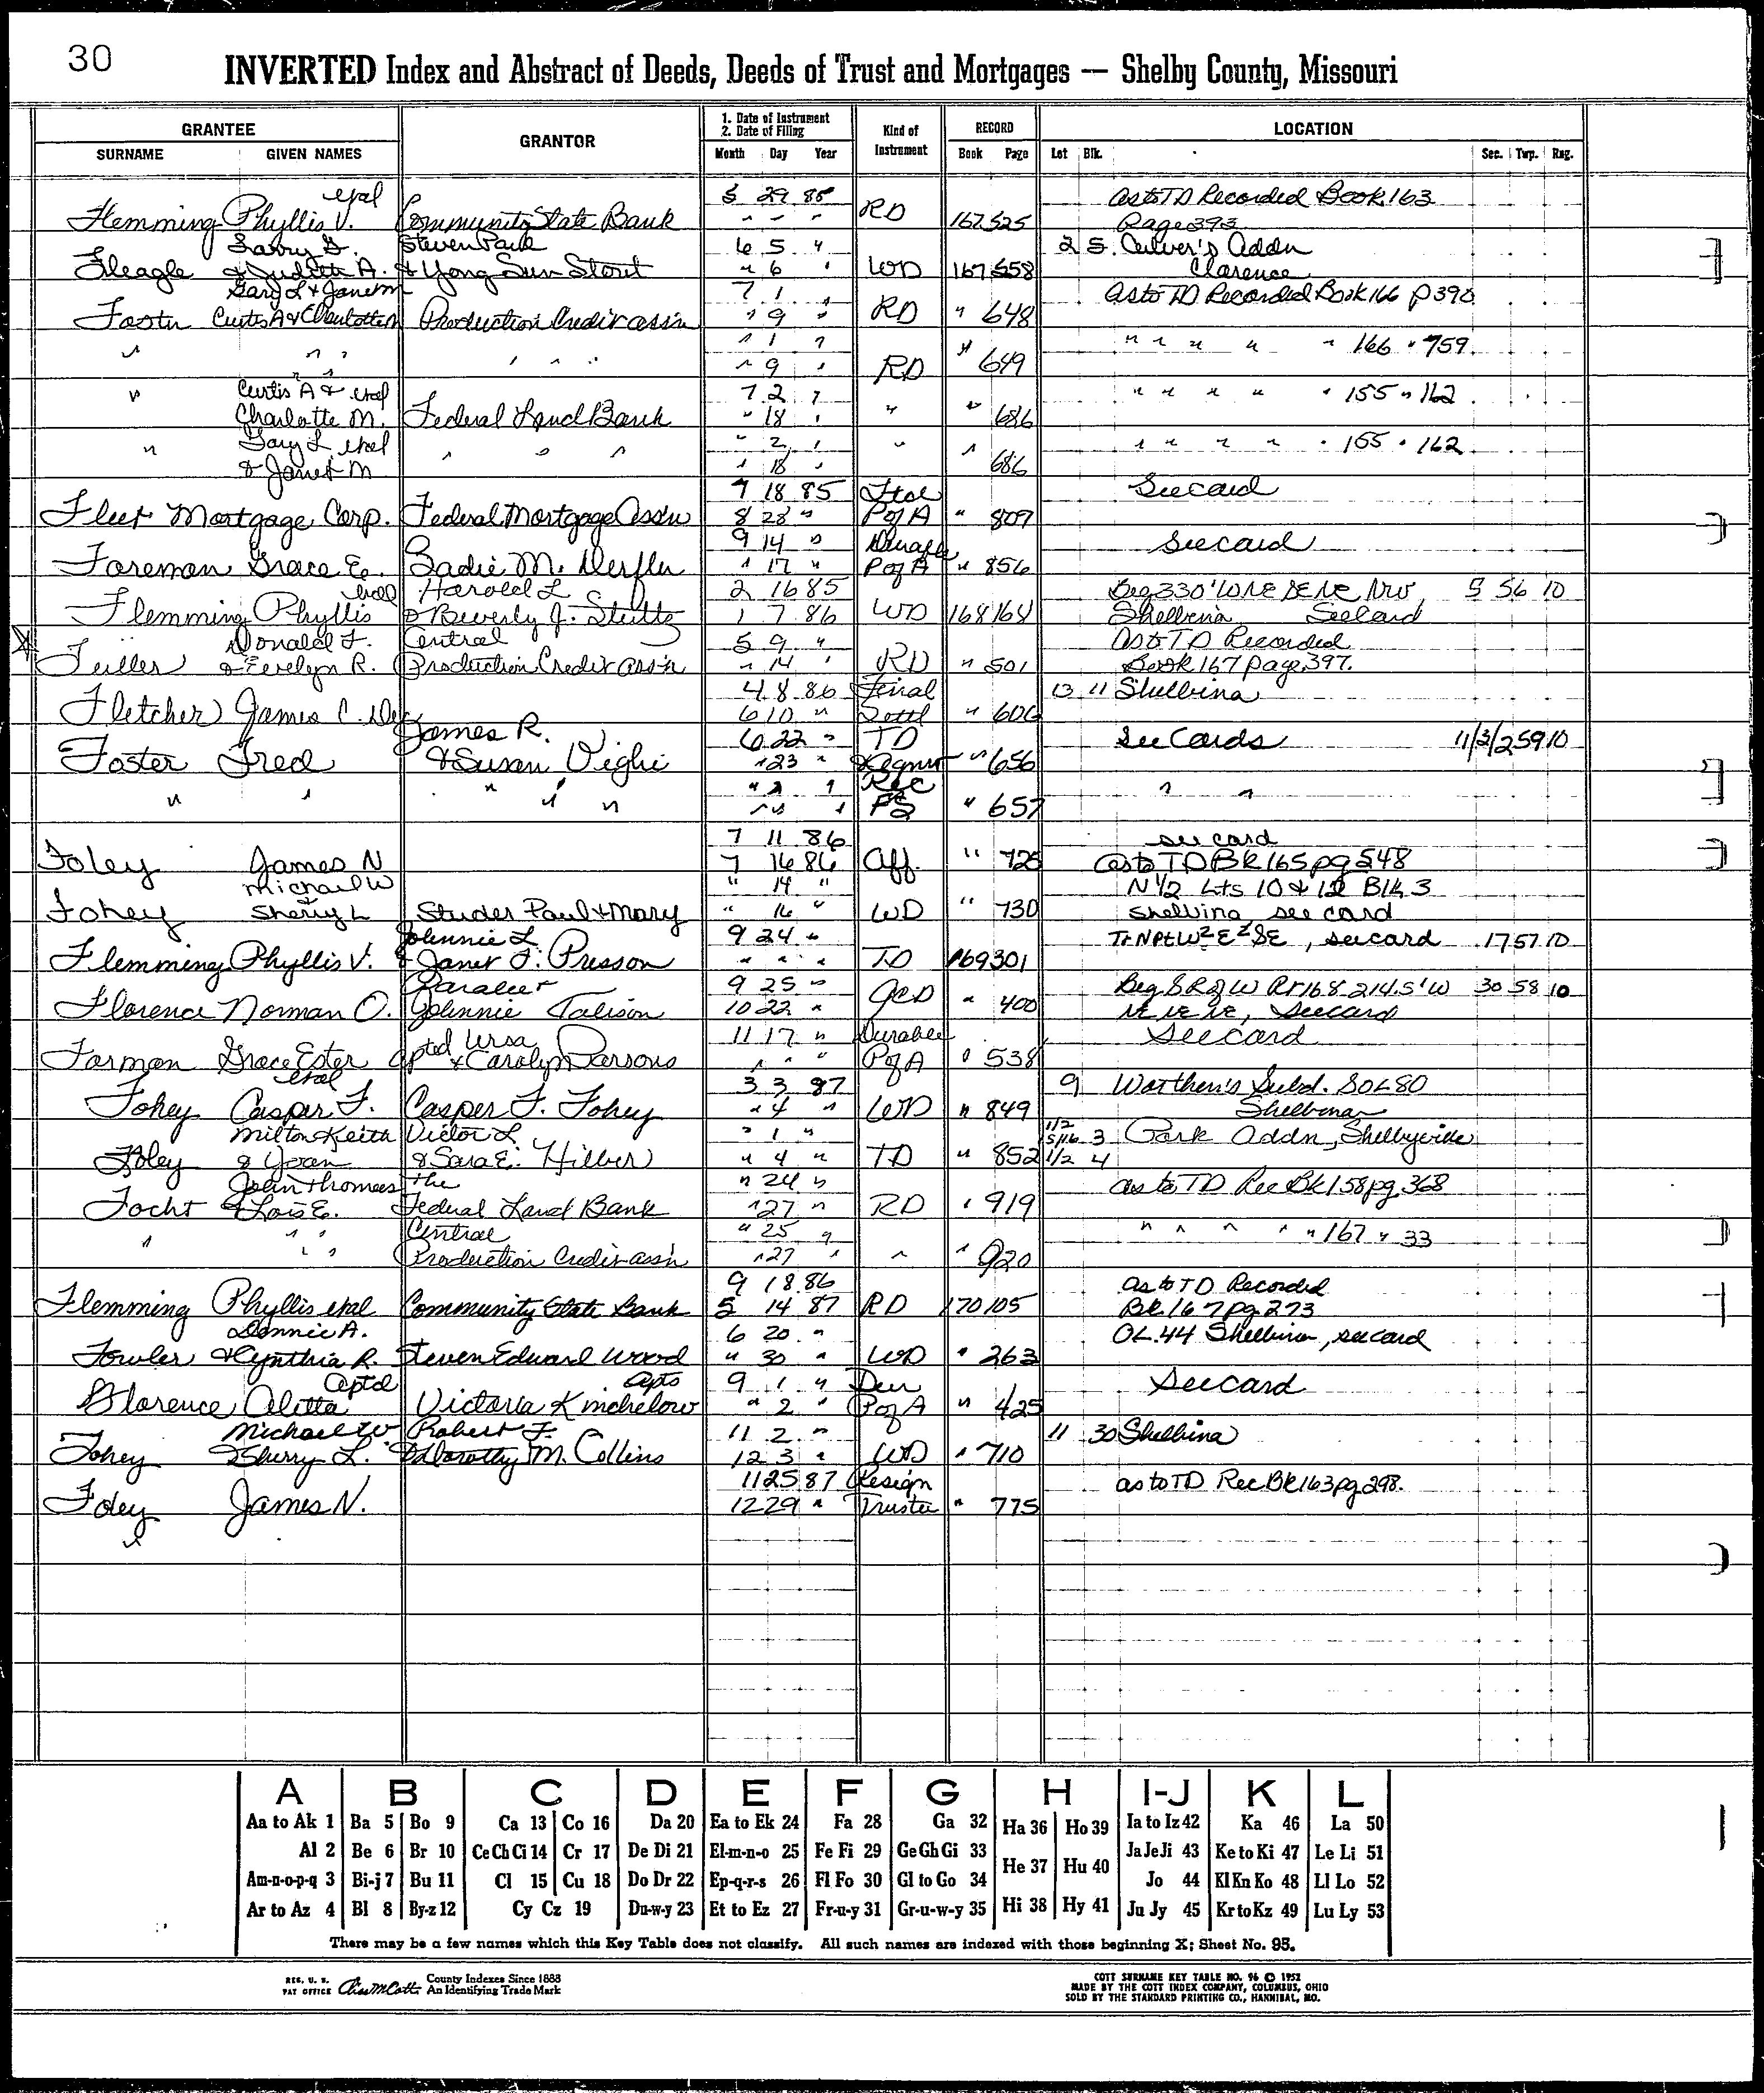 30
INVERTED Index and Abstract of Deeds, Deeds of Trust and Mortgages — Shelby County, Missouri
GRANTEE GRANTOR 1. Date of Instrument 2. Date of Filing Kind of Instrument RECORD LOCATION
SURNAME GIVEN NAMES Month Day Year Book Page Lot Blk. Sec. Twp. Rng.
etal 5 29 85 as to TD Recorded Book 163
Flemming Phyllis V. Community State Bank " " " RD 167 525 Page 393
Larry G. Steven Paul 6 5 " 2 5 Culver's Addn
Fleagle & Judith A. & Yong Sun Stout " 6 " WD 167 558 Clarence
Gary L & Janet M 7 1 " As to TD Recorded Book 166 p 390
Foster Curtis A & Charlotte M Production Credit Ass'n " 9 " RD " 648
" 1 " " " " " " 166 " 759
" " " " " " " 9 " RD " 649
Curtis A & etal 7 2 " " " " " " 155 " 162
" Charlotte M. Federal Land Bank " 18 " " " 686
Gary L etal " 2 " " " " " " " 155 " 162
" & Janet M " " " " 18 " " 686
7 18 85 See card
Fleet Mortgage Corp. Federal Mortgage Ass'n 8 28 " P of A " 807
9 14 " Durable See card
Foreman Grace E. Sadie M. Derfler " 17 " P of A " 856
etal Harold L 2 16 85 Beg 330' W NE SE NE NW 5 56 10
Flemming Phyllis & Beverly J. Stutts 1 7 86 WD 168 164 Shelbina See card
Donald F. Central 5 9 " As to TD Recorded
Fuller & Evelyn R. Production Credit Ass'n " 14 " RD " 501 Book 167 page 397.
4 8 86 Final 13 11 Shelbina
Fletcher James C. Dec 6 10 " Settl " 606
James R. 6 22 " TD See Cards 11/3/2 59 10
Foster Fred & Susan Vighi " 23 " " 656
" " " " " Rec " "
FS " 657
7 11 86 see card
Foley James N 7 16 86 Aff. " 725 as to TD Bk 165 pg 548
Michael W " 14 " N 1/2 Lts 10 & 12 Blk 3
Fohey Sherry L Studer Paul & Mary " 16 " WD " 730 Shelbina, see card
Johnnie L. 9 24 " Tr N Pt W2 E2 SE, see card 17 57 10
Flemming Phyllis V. & Janet F. Presson " " " TD 169 301
9 25 " Beg S R of W Rt 168 214.5' W 30 58 10
Florence Norman O. Johnnie Talison 10 22 " QCD " 400 NE NE NE, See card
Apted Ursa 11 17 " Durable See card
Forman Grace Ester & Carolyn Parsons " " " P of A " 538
etal 3 3 87 9 Worthen's Subd. SOL 80
Fohey Casper F. Casper F. Fohey " 4 " WD " 849 Shelbina
Milton Keith Victor L " 1 " 1/2 5/16 3 Park Addn, Shelbyville
Foley & Joan & Sara E. Hilber " 4 " TD " 852 1/2 4
John Thomas The " 24 " as to TD Rec Bk 158 pg 368
Focht & Lois E. Federal Land Bank " 27 " RD " 919
Central " 25 " " " " " " 167 " 33
" " " Production Credit ass'n " 27 " " " 920
9 18 86 as to TD Recorded
Flemming Phyllis etal Community State Bank 5 14 87 RD 170 105 Bk. 167 pg 273
Donnie A. 6 20 " OL. 44 Shelbina, see card
Fowler & Cynthia R. Steven Edward Wood " 30 " WD " 263
Aptd Apts 9 1 " Dur See card
Florence Aletta Victoria Kinchelow " 2 " P of A " 425
Michael W Robert F. 11 2 " 11 30 Shelbina
Fohey & Sherry L. & Dorothy M. Collins 12 3 " WD " 710
11 25 87 Resign as to TD Rec Bk 163 pg 298.
Foley James N. 12 29 " Trustee " 775
A B C D E F G H I-J K L
Aa to Ak 1 Ba 5 Bo 9 Ca 13 Co 16 Da 20 Ea to Ek 24 Fa 28 Ga 32 Ha 36 Ho 39 Ia to Iz 42 Ka 46 La 50
Al 2 Be 6 Br 10 Ce Ch Ci 14 Cr 17 De Di 21 El-m-n-o 25 Fe Fi 29 Ge Gh Gi 33 He 37 Hu 40 Ja Je Ji 43 Ke to Ki 47 Le Li 51
Am-n-o-p-q 3 Bi-j 7 Bu 11 Cl 15 Cu 18 Do Dr 22 Ep-q-r-s 26 Fl Fo 30 Gl to Go 34 Jo 44 Kl Kn Ko 48 Ll Lo 52
Ar to Az 4 Bl 8 By-z 12 Cy Cz 19 Du-w-y 23 Et to Ez 27 Fr-u-y 31 Gr-u-w-y 35 Hi 38 Hy 41 Ju Jy 45 Kr to Kz 49 Lu Ly 53
There may be a few names which this Key Table does not classify. All such names are indexed with those beginning X; Sheet No. 95.
REG. U. S. PAT OFFICE County Indexes Since 1888 An Identifying Trade Mark
COTT SURNAME KEY TABLE NO. 96 © 1952
MADE BY THE COTT INDEX COMPANY, COLUMBUS, OHIO
SOLD BY THE STANDARD PRINTING CO., HANNIBAL, MO.